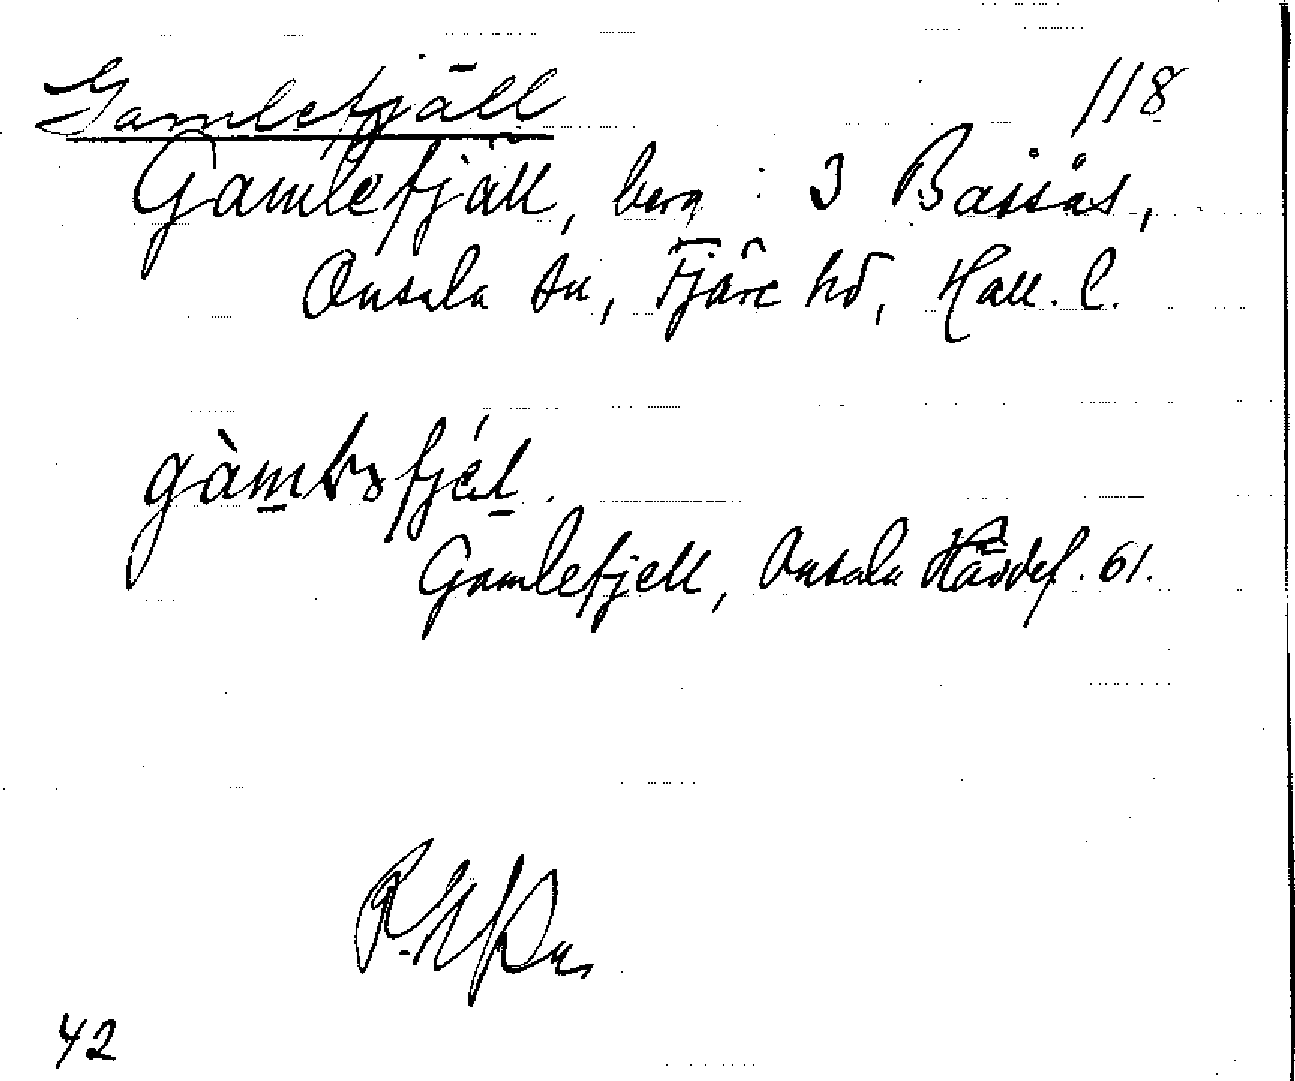 Gamlefjäll 118
Gamlefjäll, berg : 3 Bassås,
Onsala sn, Fjäre hd, Hall. l.
Gamlefjell, Onsala Hävdef. 61.
42